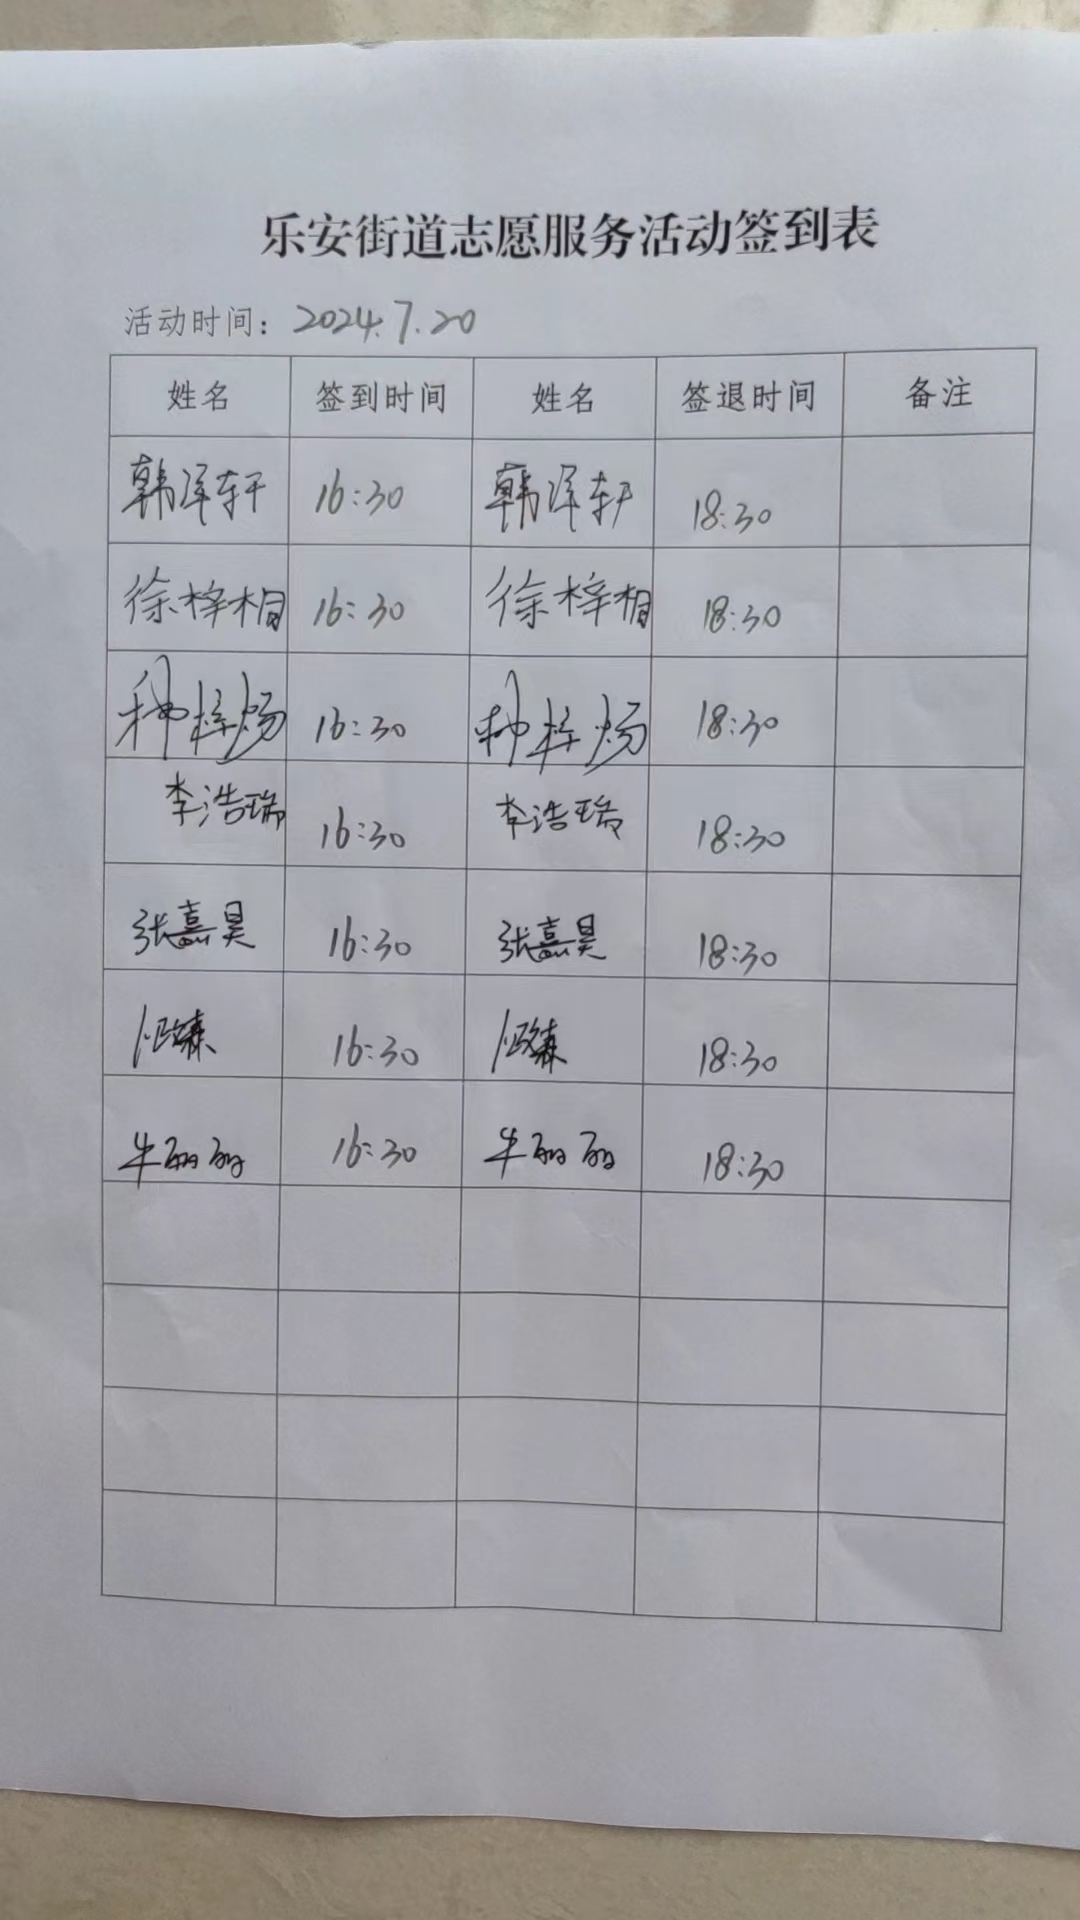 乐安街道志愿服务活动签到表
活动时间：2024.7.20
姓名 签到时间 姓名 签退时间 备注
韩泽轩 16:30 韩泽轩 18:30
徐梓桐 16:30 徐梓桐 18:30
种梓炀 16:30 种梓炀 18:30
李浩瑞 16:30 李浩瑞 18:30
张嘉昊 16:30 张嘉昊 18:30
16:30 18:30
牛丽丽 16:30 牛丽丽 18:30